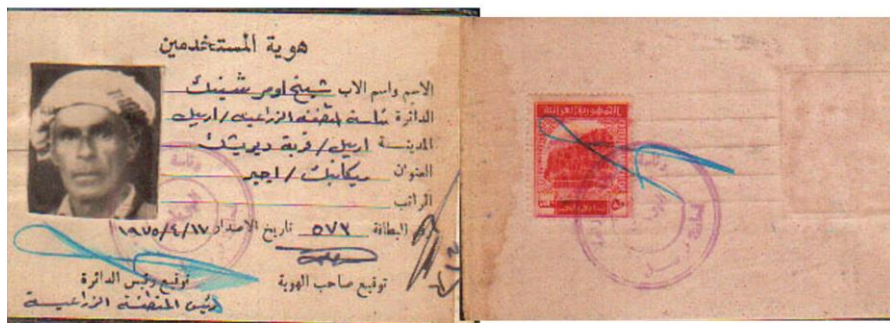 هوية المستخدمين
الاسم واسم الاب شيخ اومر شينك
الدائرة رئاسة المنطقة الزراعية / اربيل
المدينة اربيل / قرية
العنوان ميكانيك / اجير
الراتب
البطاقة ٥٧٢ تاريخ الاصدار ١٩٧٥/٤/١٧
توقيع صاحب الهوية
توقيع رئيس الدائرة
رئيس المنطقة الزراعية
الجمهورية العراقية
٥٠